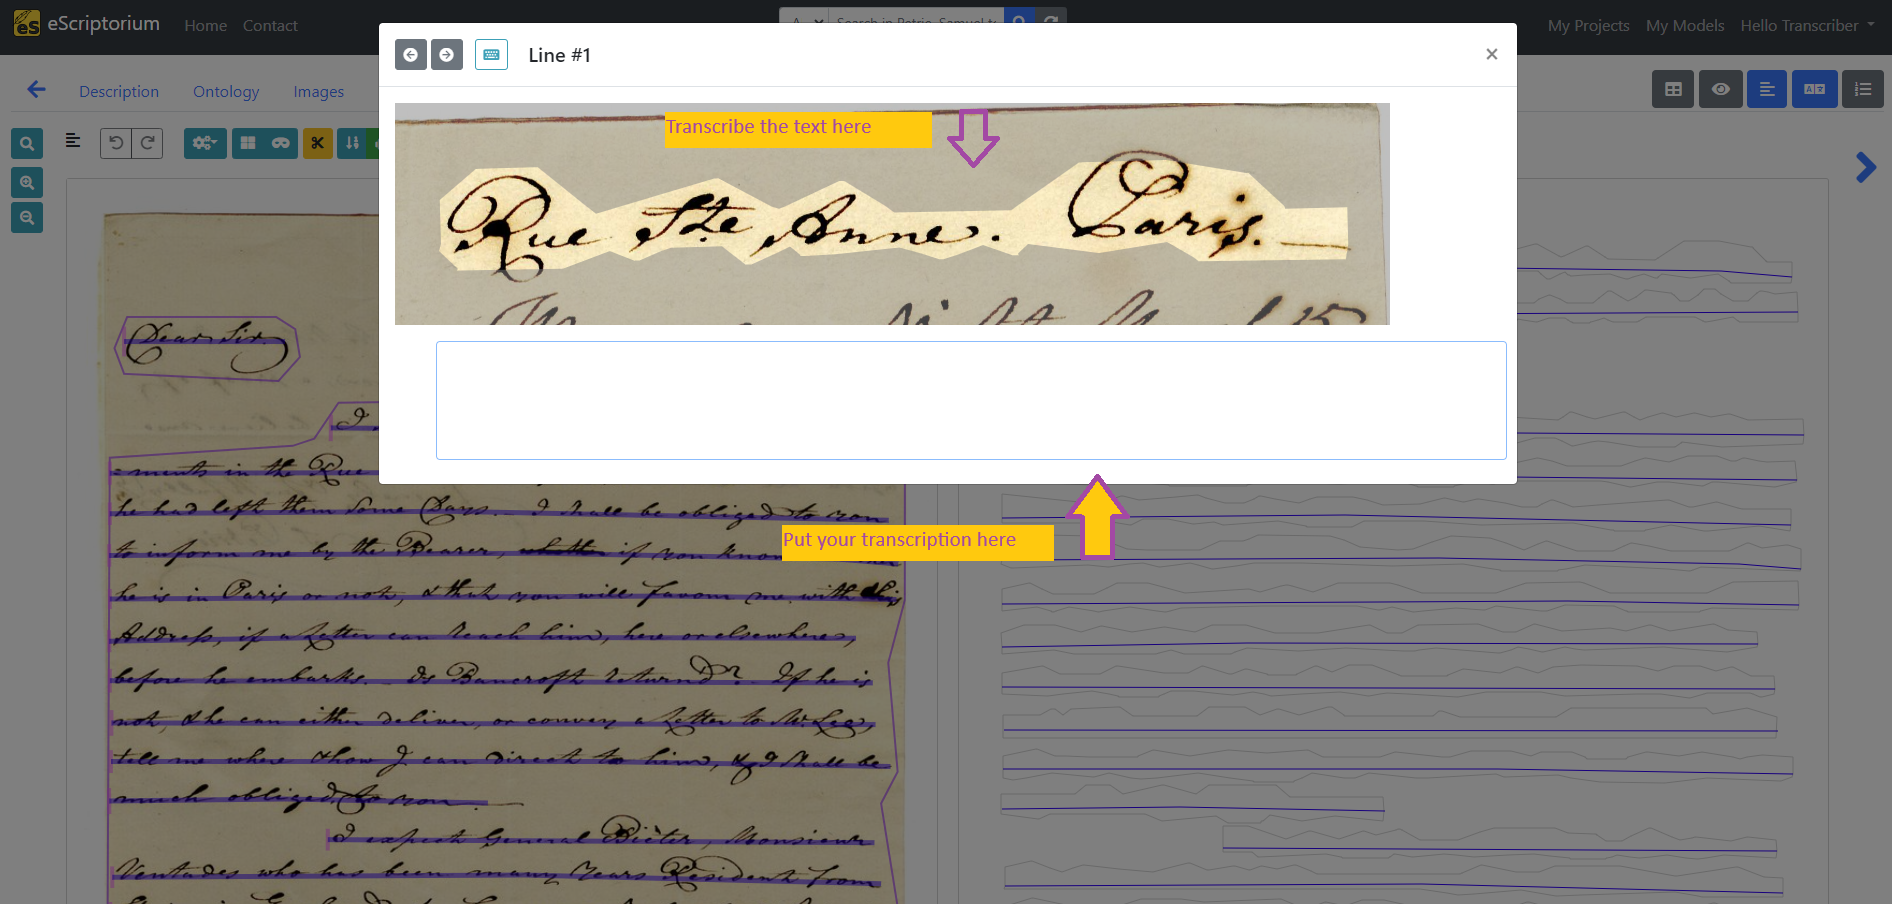 eScriptorium Home Contact
A Search in Petrie, Samuel
My Projects My Models Hello Transcriber
Line #1 ×
Description Ontology Images
Transcribe the text here
Rue Ste Anne. Paris.
Put your transcription here
Dear Sir.
I
=ments in the Rue
he had left them some Days. I shall be obliged to you
to inform me by the Bearer, whether if you know
he is in Paris or not, & that you will favour me with his
Address, if a Letter can reach him, here or elsewhere,
before he embarks. Is Bancroft returnd? If he is
not, & he can either deliver, or convey a Letter to Mr. Lee,
tell me where & how I can direct to him, & I shall be
much obliged to you.
I expect General Monsieur
Ventades who has been many Years Resident from